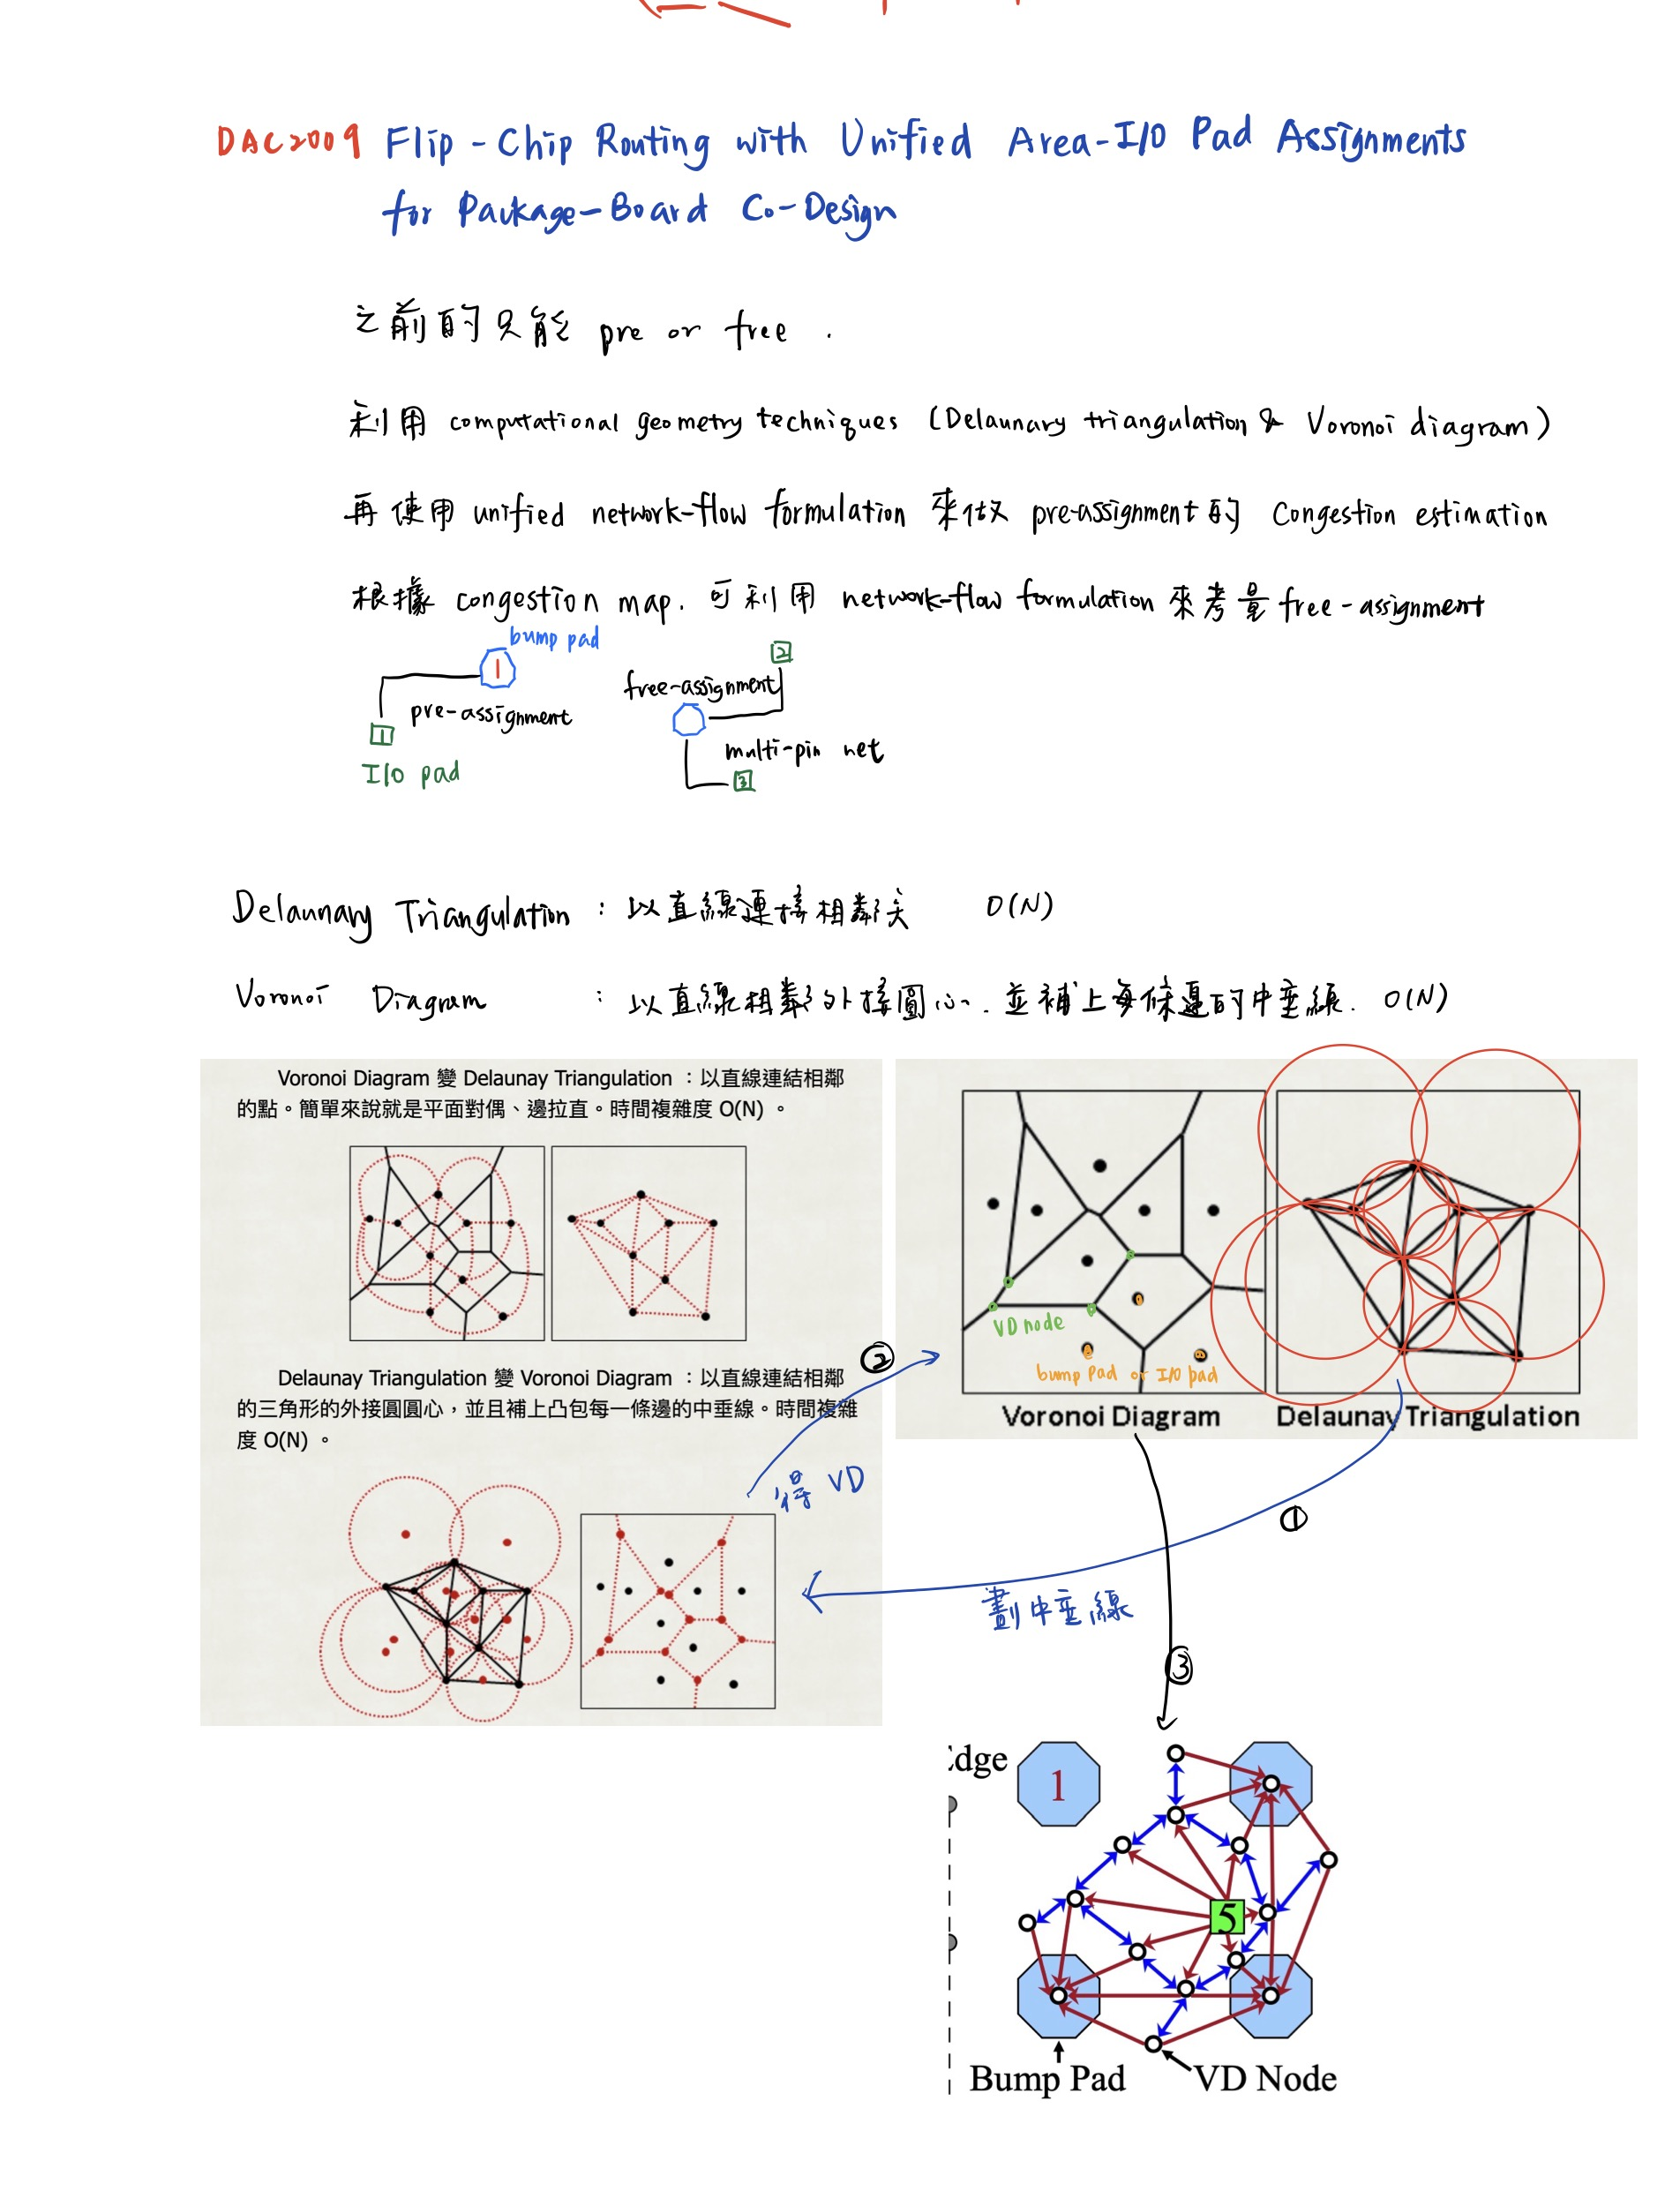 DAC2009 Flip-Chip Routing with Unified Area-I/O Pad Assignments
for Package-Board Co-Design
之前的只能 pre or free .
利用 computational geometry techniques (Delaunary triangulation & Voronoi diagram)
再使用 unified network-flow formulation 來做 pre-assignment的 Congestion estimation
根據 congestion map. 可利用 network-flow formulation 來考量 free-assignment
bump pad
1
pre-assignment
1
I/O pad
2
free-assignment
multi-pin net
3
Delaunary Triangulation : 以直線連接相鄰点 O(N)
Voronoi Diagram : 以直線相鄰外接圓心. 並補上每條邊的中垂線. O(N)
Voronoi Diagram 變 Delaunay Triangulation ：以直線連結相鄰
的點。簡單來說就是平面對偶、邊拉直。時間複雜度 O(N) 。
Delaunay Triangulation 變 Voronoi Diagram ：以直線連結相鄰
的三角形的外接圓圓心，並且補上凸包每一條邊的中垂線。時間複雜
度 O(N) 。
VD node
bump pad or I/O pad
Voronoi Diagram
Delaunay Triangulation
②
得 VD
①
劃中垂線
③
Edge
1
5
Bump Pad
VD Node